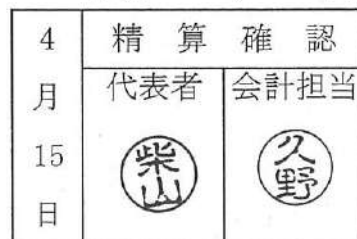 4月15日
精算確認
代表者
会計担当
柴山
久野